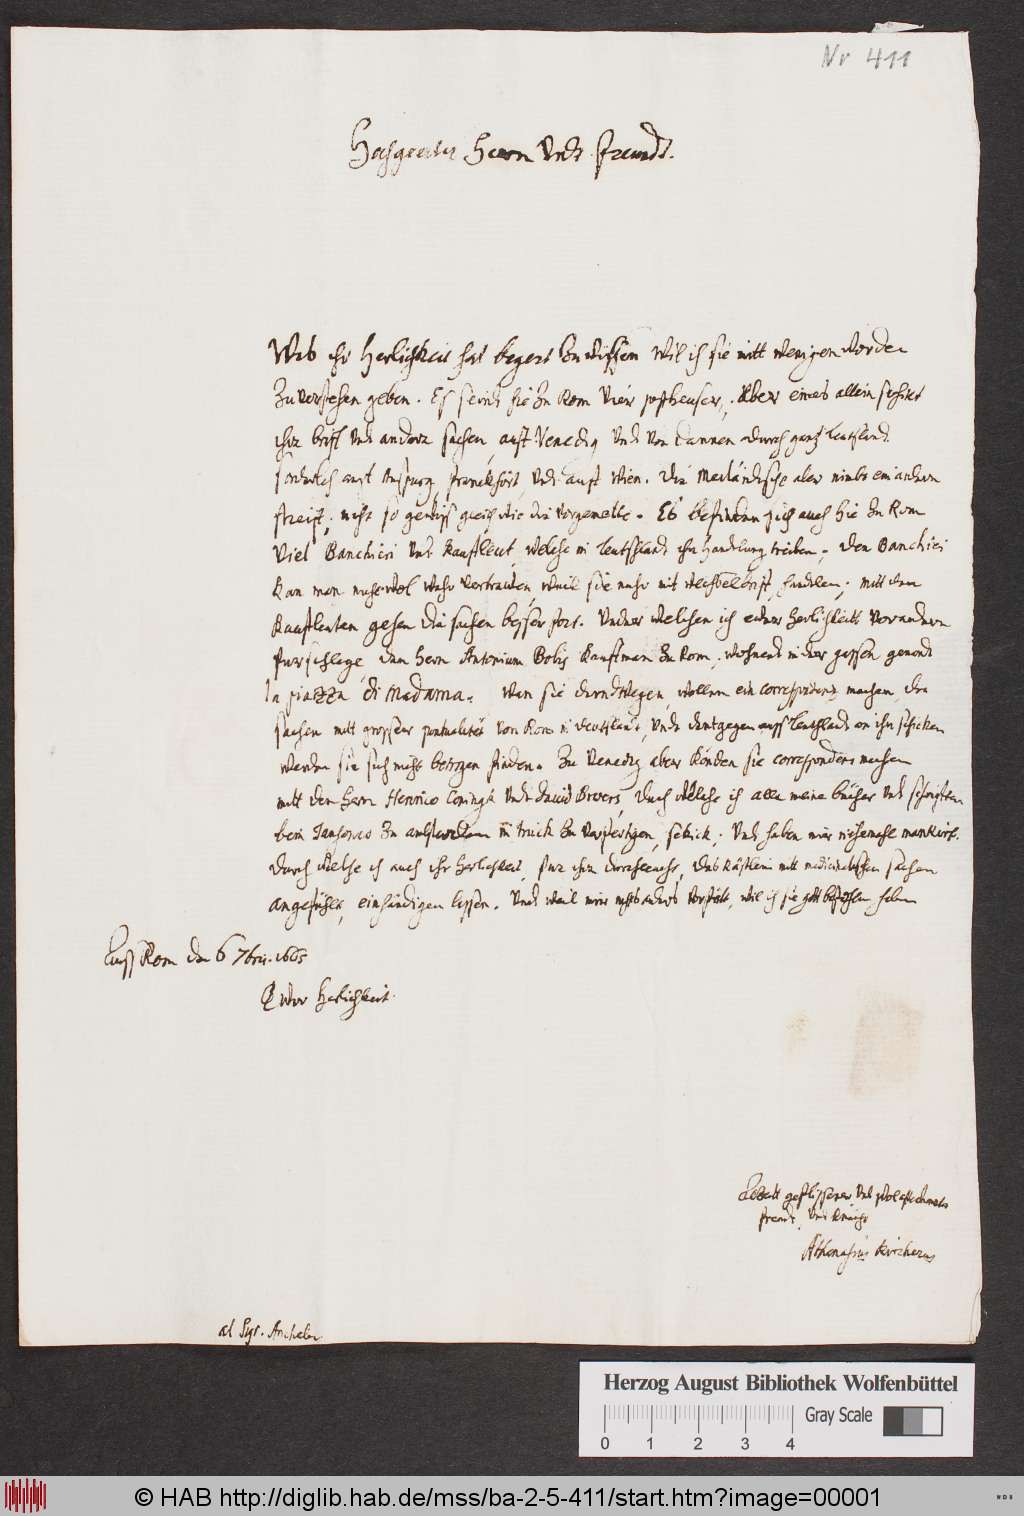 Nr 411
Hochgeerter Herrn Undt freundt.
Was ihr Herlichkeit hat begert Zu wissen wil ich sie mitt wenigen worden
Zu verstehen geben. Es seind hie Zu Rom Vier postheuser, Aber eines allein schikt
ihre briff Und andere sachen, auff Venedig Und von dannen durch gantz teutschland.
auff Auspurg, franckfort, Undt auff Wien. Die Meiländische aber nimbt ein andern
streiff, nicht so gewiss gleich wie die vorgemelte. Es befinden sich auch hie Zu Rom
Viel Banchieri Undt Kauffleut, welche in teutschlandt ihr Handlung treiben, Den Banchiri
Kan man nicht wol vertrauwen weil sie nuhr mit Wechselbriff handlen; mitt den
Kauffleuten gehen die sachen besser fort. Under welchen ich eder Herlichkeitt Vor andern
furschlage den Hern Antonium Bobis Kauffman Zu Rom, wohnend in der gassen genand
la piazza di Madama. Wan sie wollen ein correspondenz machen, die
sachen mitt grosser pontualitet von Rom in deutschlandt, Undt dentgegen auss teutschlandt an ihn schicken
werden sie sich nicht betrogen finden. Zu Venedig aber Könden sie correspondens machen
mitt den Hern Henrico Coninga Undt David Brevers, durch welche ich alle meine bücher Und schrifften
bein Jansonio Zu Amsterdam in truck Zu verfertigen, schick; Undt haben mir niehemahl mankirt.
durch welche ich auch ihr Herlichkeit, fur ihre durchleucht, das Kästlein mitt medicinalischen sachen
angefühlt, einhändigen lassen. Undt weil mir nichts anders vorfält, wil ich sie gott befohlen haben
Auss Rom den 6 7bris. 1665
Ewer Herlichkeit.
geflissener Undt
freundt, Und Knecht
Athanasius Kircherus
al Sigr.
Herzog August Bibliothek Wolfenbüttel
Gray Scale
0 1 2 3 4
© HAB http://diglib.hab.de/mss/ba-2-5-411/start.htm?image=00001